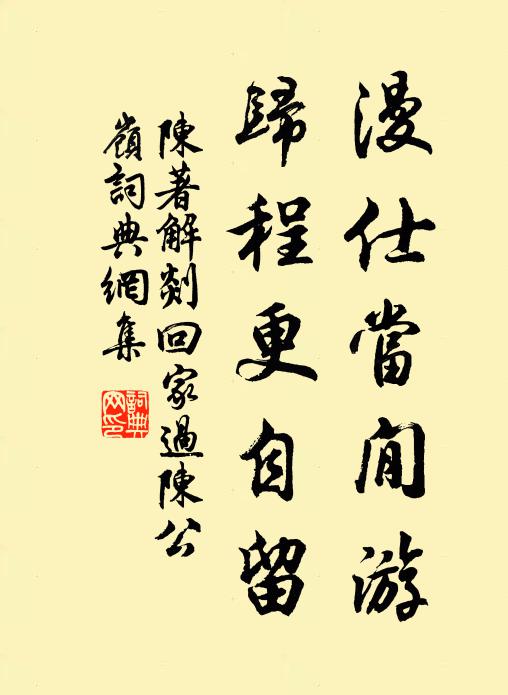 漫仕當閒游
歸程更自留
陳著解剡回家過陳公
嶺詞典網集
詞典网印